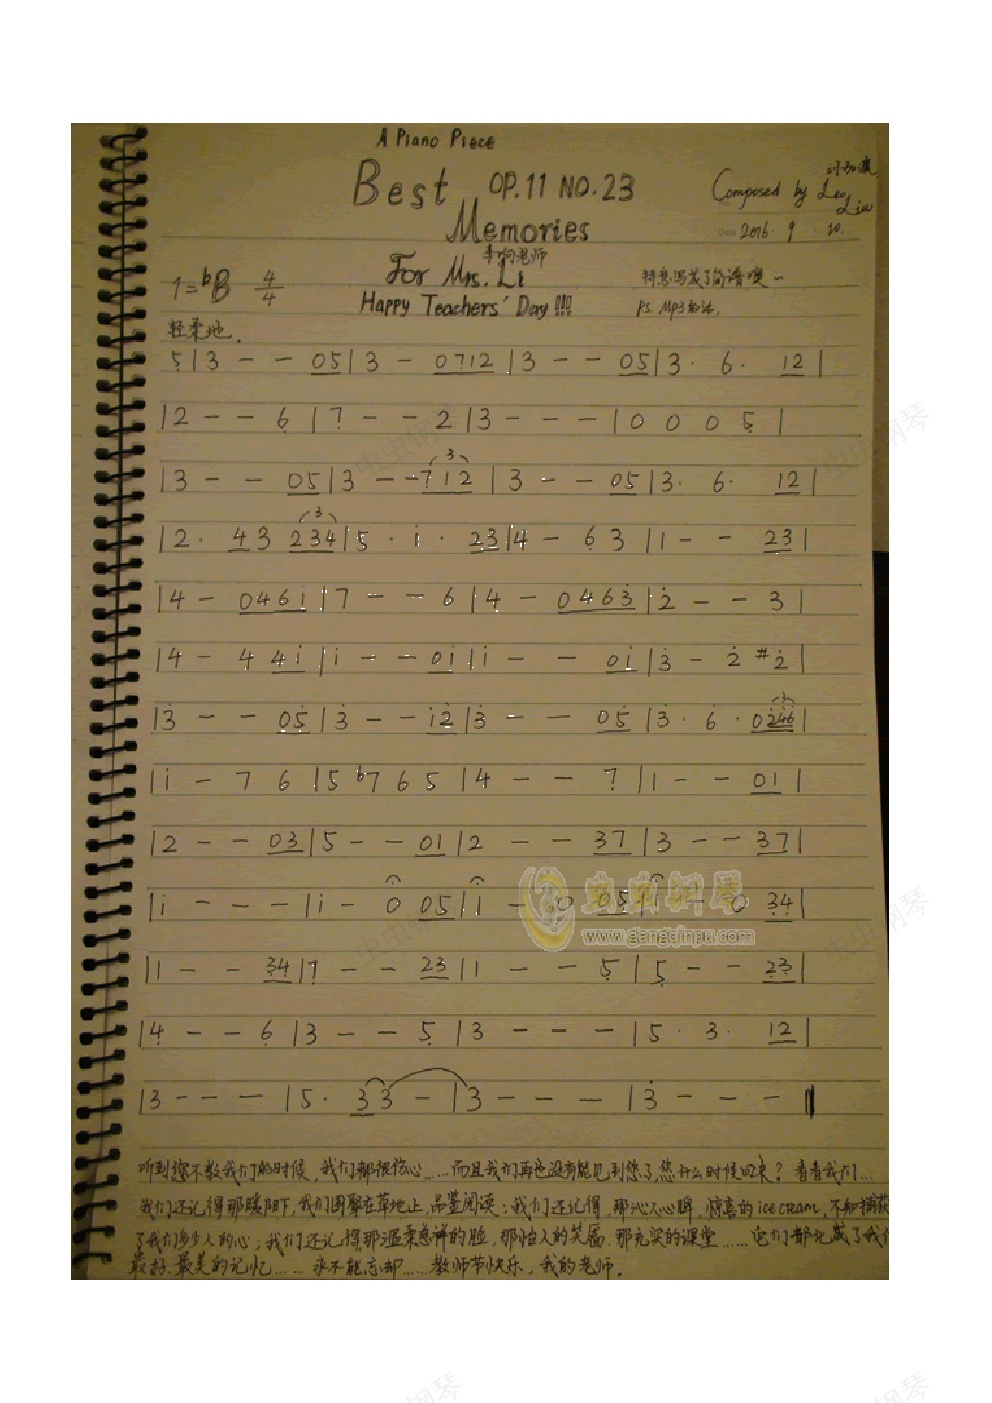 A Piano Piece
Best OP.11 NO.23
Memories
Composed by Leo Liu
2016. 9 10.
For Mrs. Li
老师
Happy Teachers' Day!!!
特意写成了简谱噢~
P.S. Mp3
1=bB 4/4
轻柔地.
5̣|3 - - 05|3 - 0712|3 - - 05|3· 6· 12|
|2 - - 6̣|7̣ - - 2|3 - - -|0 0 0 5̣|
|3 - - 05|3 - - 712|3 - - 05|3· 6· 12|
|2· 43 234|5· i· 23|4 - 6̣ 3|1 - - 23|
|4 - 046i|7 - - 6|4 - 0463̇|2̇ - - 3|
|4 - 4 4i|i - - 0i|i - - 0i|3̇ - 2̇ #2̇|
|3̇ - - 05̇|3̇ - - i2̇|3̇ - - 05̇|3̇· 6̇· 02̇4̇6̇|
|i - 7 6|5 b7 6 5|4 - - 7̣|1 - - 01|
|2 - - 03|5 - - 01|2 - - 37|3 - - 37|
|i - - -|i - 0 05|i - 0 05|i - 0 3̣4̣|
|1 - - 3̣4̣|7̣ - - 23|1 - - 5̣|5̣ - - 2̣3̣|
|4̣ - - 6̣|3 - - 5̣|3 - - -|5· 3· 12|
|3 - - -|5· 33 -|3 - - -|3̇ - - -‖
虫虫钢琴
www.gangqinpu.com
听到您不教我们的时候,我们都很伤心……而且我们再也没有能见到您了,您什么时候回来?看看我们…
我们还记得那暖阳下,我们围聚在草地上,品鉴阅读;我们还记得,那沁人心脾,惊喜的ice cream,不知捕获
了我们多少人的心;我们还记得那温柔慈祥的脸,那怡人的笑靥,那充实的课堂……它们都化成了我们
最好、最美的记忆……永不能忘却……教师节快乐,我的老师.